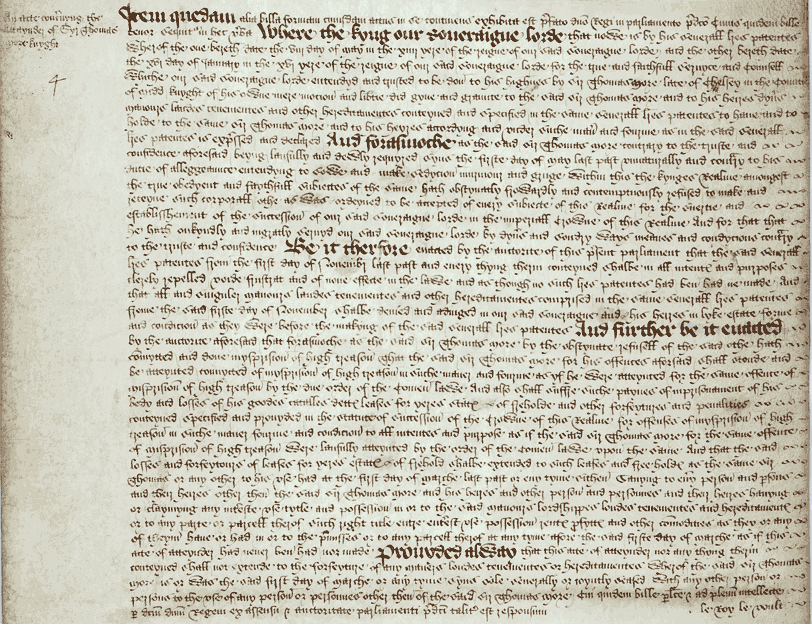 An acte concernyng the
attaynder of Sir Thomas
More knyght
Item quedam alia billa formam cuiusdam actus in se continens exhibita est prefato domino Regi in parliamento predicto Cuius quidem bille
tenor sequitur in hec verba Where the kyng our soveraigne lorde that nowe is by his severall lres patentes
Wherof the one bereth date the day of may in the yere of the reigne of our said soveraigne lorde and the other bereth date
the day of January in the yere of the reigne of our said soveraigne lorde for the true and faithfull service and counsell
Whiche our said soveraigne lorde entendyd and trusted to be don to his highnes by Sir Thomas More late of Chelsey in the Countie
of knyght of his owne mere motion and did gyve and graunte to the said Sir Thomas More and to his heires dyvers
manours landes tenementes and other hereditamentes conteyned and specified in the same severall lres patentes to have and to
holde to the same Sir Thomas More and to his heyres accordyng and under suche maner and fourme as in the said severall
lres patentes is expressed and declared And forasmoche as the said Sir Thomas More contrary to the truste and
confidence aforesaid beyng laufully and required syns the firste day of may last past unnaturally and contrary to his
dutie of alleggeaunce entendyng to sowe and make sedycion murmour and grugge within this the kynges Realme amongest
the true obedyent and faythfull subiectes of the same hath obstynatly frowardly and contemptuously refused to make and
receyve suche corporall othe as was ordeyned to be accepted of every subiecte of this Realme for the suertie and
establisshement of the succession of our said soveraigne lorde in the imperiall Crowne of this Realme And for that that
he hath unkyndly and ingratly servyd our said soveraigne lorde by dyvers and sondry wayes meanes and condycions contrary
to the truste and confidence Be it therfore enacted by the auctorite of this present parliament that the said severall
lres patentes from the first day of Novembr last past and every thyng therin conteyned shalbe in all intentes and purposes
clerely repelled voide frustrat and of none effecte in the lawe and as though no suche lres patentes had ben had ne made And
that all and singuler manours landes tenementes and other hereditamentes comprised in the same severall lres patentes
frome the said firste day of November shalbe demed and adiuged in our said soveraigne and his heires in lyke estate fourme
and condicion as they were before the makyng of the said severall lres patentes And further be it enacted
by the auctorite aforesaid that forasmoche as the said Sir Thomas More by the obstynate refusell of the said othe hath
comytted and done mysprision of high treason That the said Sir Thomas More for his offences aforsaid shall stonde and
be atteynted convicted of mysprision of high treason in suche maner and fourme as yf he were atteynted for the same offence of
misprision of high treason by the due order of the Comen lawe And also shall suffre suche paynes of imprisonament of his
body and losses of his goodes catalles dettes leases for yeres estates of freholde and other forfeytures and penalities
conteyned specified and provyded in the statute of succession of the Crowne of this Realme for offenses of mysprision of high
treason in suche maner fourme and condicion to all intentes and purpose as if the said Sir Thomas More for the same offence
of misprision of high treason were laufully atteynted by the order of the comen lawe upon the same And that the said
losses and forfeytours of leases for yeres estates of frehold shalbe extended to suche leases and freholdes as the same Sir
Thomas or any other to his use had at the first day of marche last past or eny tyme sithen Savyng to eny person and persons
and their heires other then the said Sir Thomas More and his heires and other person and persones and their heires havyng
or claymyng any intereste use tytle and possession in or to the said manours lordshippes londes tenementes and hereditamentes
or to any parte or parcell therof such right title entre enterest use possession rente proffytte and other comodites as they or any
of theym have or had in or to the premisses or to any parcell therof at any tyme afore the said firste day of marche as if this
acte of atteynder had never ben had nor made Provyded alway that this acte of atteynder nor any thyng therin
conteyned shall not extende to the forfeyture of any maners londes tenementes or hereditamentes Wherof the said Sir Thomas
More is or was the said first day of marche or any tyme syns sole severally or joyntly seased With any other person or
persons to the use of any person or persones other then of the said Sir Thomas More Cui quidem bille perlecte et ad plenum intellecte
per dictum dominum Regem ex assensu et auctoritate parliamenti predicti taliter est responsum le Roy le veult